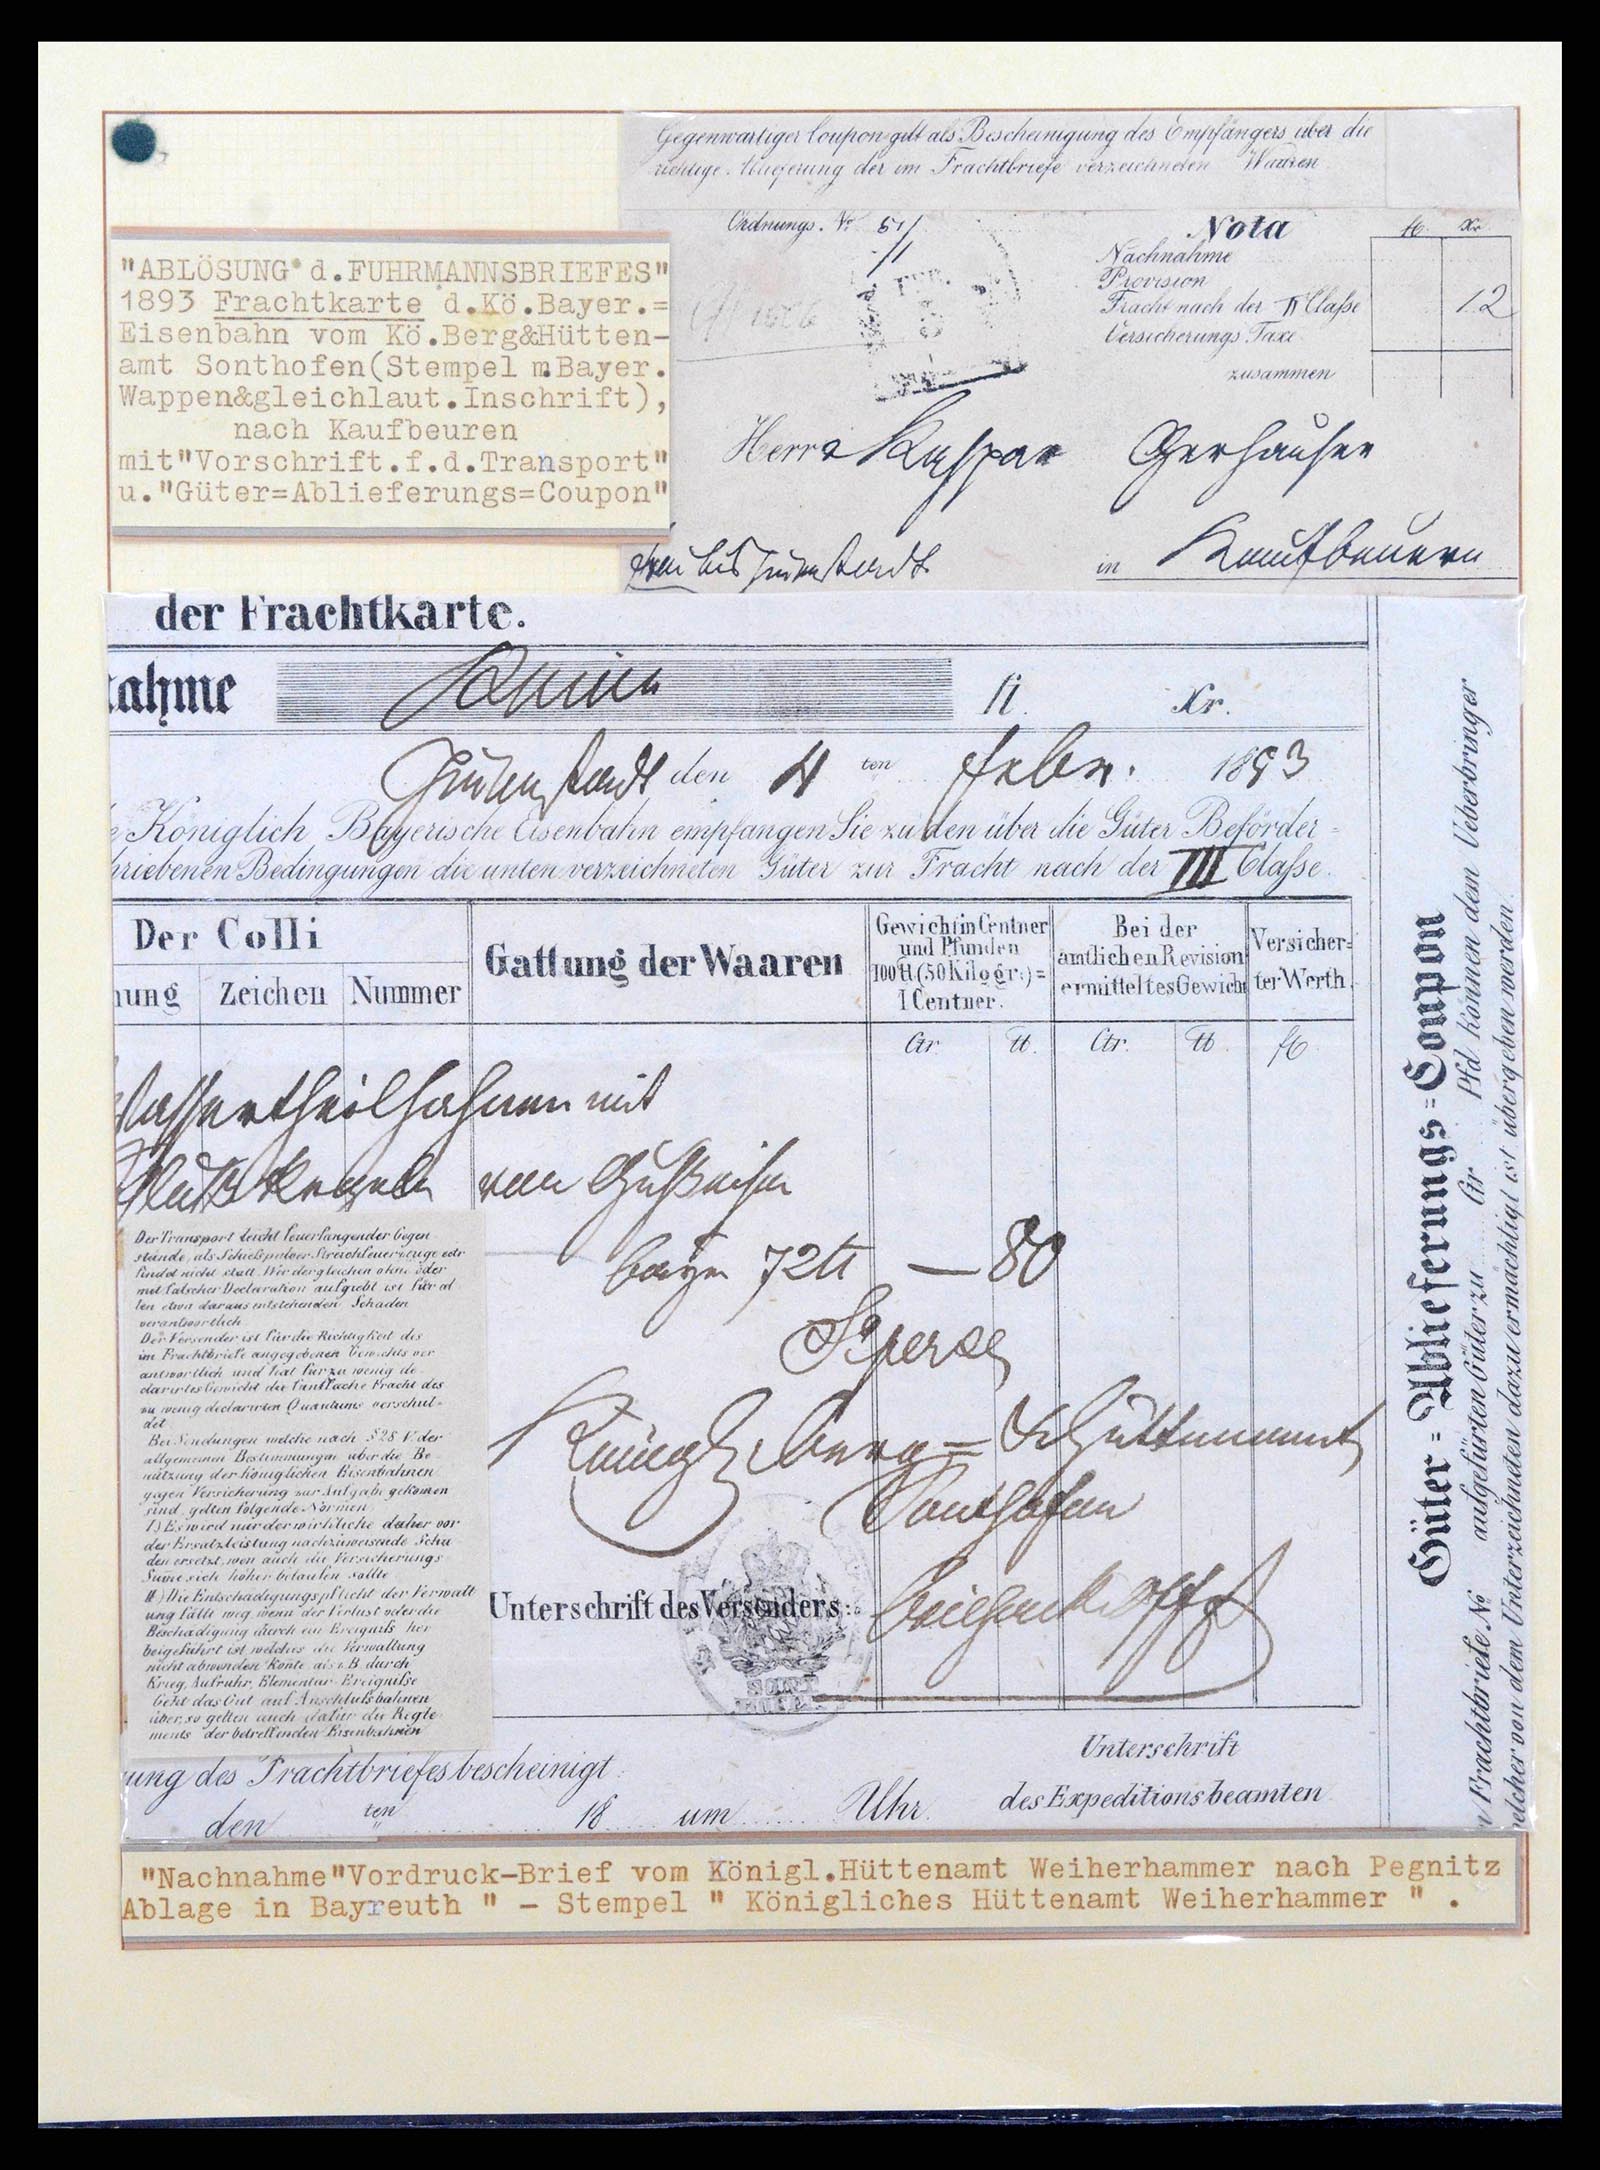 Gegenwärtiger Coupon gilt als Bescheinigung des Empfängers über die
richtige Ablieferung der im Frachtbriefe verzeichneten Waaren
Ordnungs. No 51/
Nota
fl. Xr.
Nachnahme
Provision
Fracht nach der II Claße 12
Versicherungs Taxe
zusammen
Herrn Kaspar Gerhauser
in Kaufbeuern
"ABLÖSUNG d.FUHRMANNSBRIEFES"
1893 Frachtkarte d.Kö.Bayer.=
Eisenbahn vom Kö.Berg&Hütten-
amt Sonthofen(Stempel m.Bayer.
Wappen&gleichlaut.Inschrift),
nach Kaufbeuren
mit"Vorschrift.f.d.Transport"
u."Güter=Ablieferungs=Coupon"
der Frachtkarte.
nahme fl. Xr.
den 4 ten Febr. 1893
Königlich Bayerische Eisenbahn empfangen Sie zu den über die Güter Beförder=
hriebenen Bedingungen die unten verzeichneten Güter zur Fracht nach der III Claße.
Der Colli
nung Zeichen Nummer
Gattung der Waaren
Gewicht in Centner
und Pfunden
100 ℔ (50 Kilogr.)=
1 Centner.
Bei der
amtlichen Revision
ermitteltes Gewicht
Versicher=
ter Werth.
Ctr. ℔. Ctr. ℔. fl.
Wassertheilhahnen mit
von Gußeisen
bayr 72 ℔ — 80
Königl. Berg= & Hüttenamt
Sonthofen
Unterschrift des Versenders:
Der Transport leicht feuerfangender Gegen-
stände, als Schießpulver Streichfeuerzeuge ectr
findet nicht statt. Wer dergleichen ohne oder
mit falscher Declaration aufgiebt ist für al
len etwa daraus entstehenden Schaden
verantwortlich
Der Versender ist für die Richtigkeit des
im Frachtbriefe angegebenen Gewichts ver
antwortlich und hat für zu wenig de
clarirtes Gewicht die fünffache Fracht des
zu wenig declarirten Quantums verschul-
det.
Bei Sendungen welche nach § 28 V. der
allgemeinen Bestimmungen über die Be-
nützung der Königlichen Eisenbahnen
gegen Versicherung zur Aufgabe gekomen
sind, gelten folgende Normen
I) Es wird nur der wirkliche daher vor
der Ersatzleistung nachzuweisende Scha
den ersetzt, wen auch die Versicherungs
Sume sich höher belaufen sollte
II) Die Entschädigungspflicht der Verwalt
ung fällt weg wenn der Verlust oder die
Beschädigung durch ein Ereigniß her
beigeführt ist, welches die Verwaltung
nicht abwenden konte, als z.B. durch
Krieg, Aufruhr, Elementar-Ereigniße
Geht das Gut auf Anschlußbahnen
über, so gelten auch dafür die Regle-
ments der betreffenden Eisenbahnen
ung des Frachtbriefes bescheinigt:
den ten 18 um Uhr.
Unterschrift
des Expeditionsbeamten
Güter=Ablieferungs=Coupon
Frachtbriefe No aufgefürten Güter zu Ctr Pfd können dem Ueberbringer
welcher von dem Unterzeichneten dazu ermächtigt ist übergeben werden.
"Nachnahme"Vordruck-Brief vom Königl.Hüttenamt Weiherhammer nach Pegnitz
Ablage in Bayreuth " - Stempel " Königliches Hüttenamt Weiherhammer " .